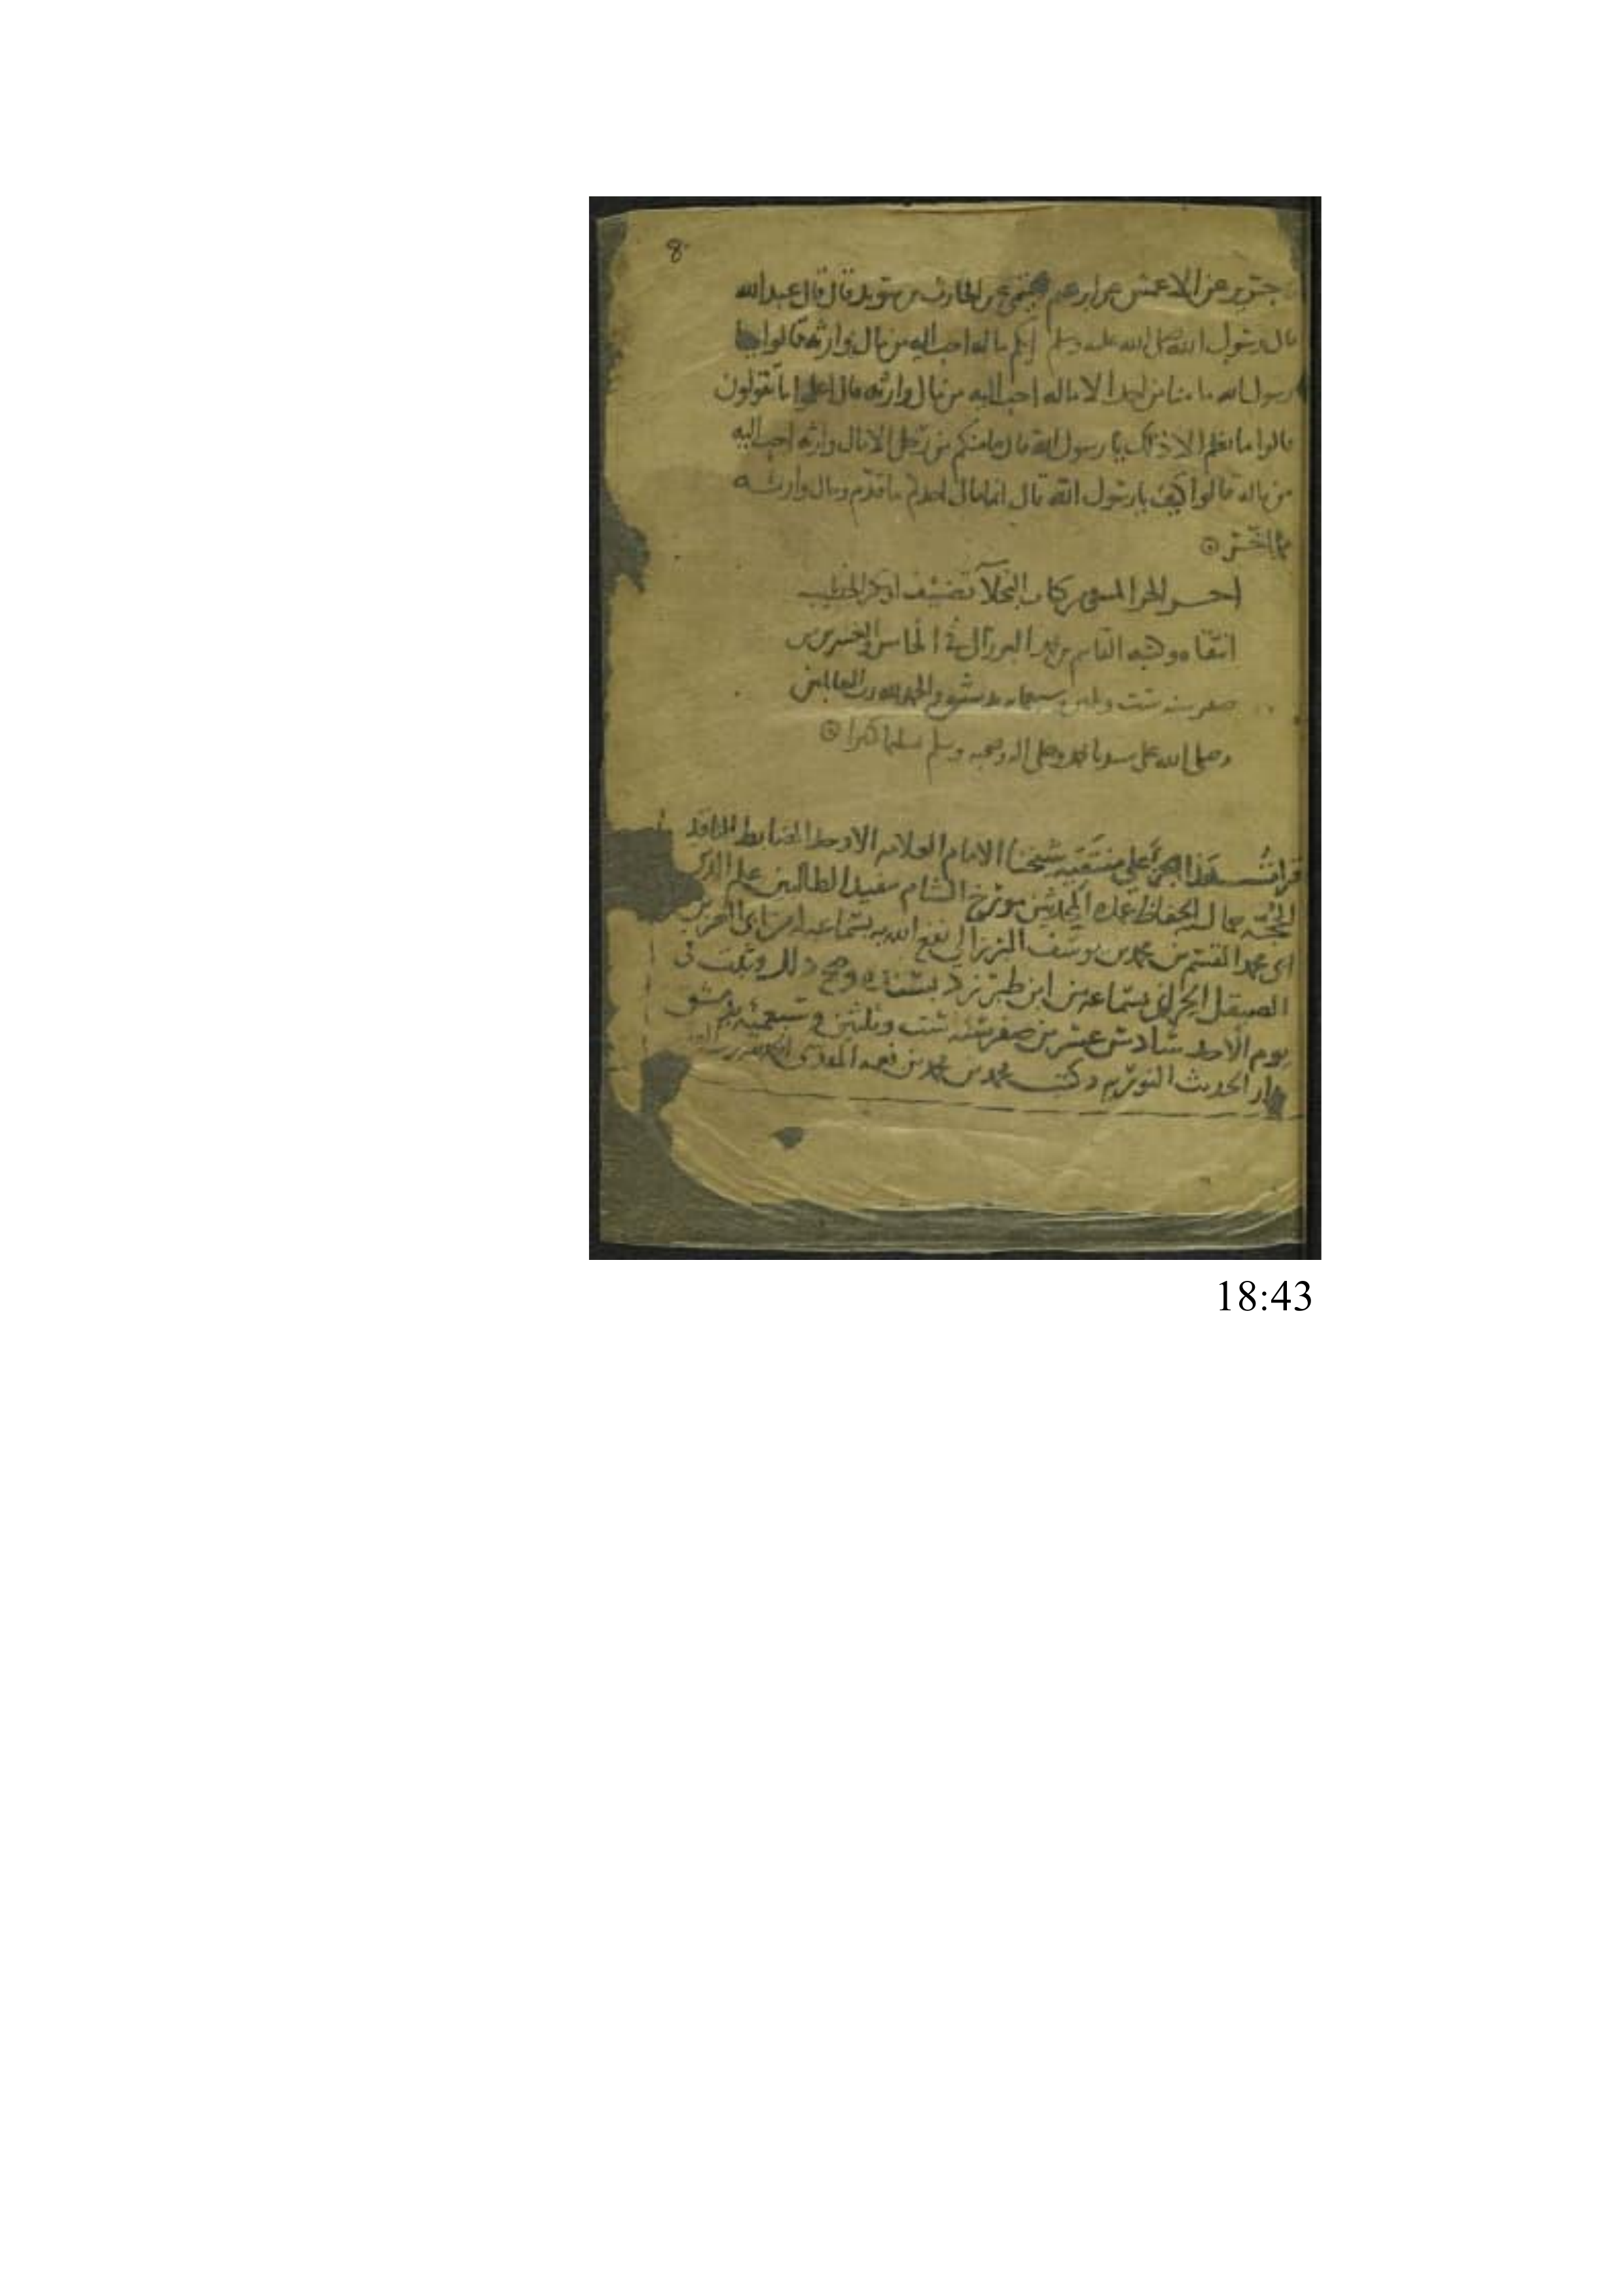 8
جرير عن الاعمش عن ابرهيم التيمي عن الحارث بن سويد قال قال عبد الله
قال رسول الله صلى الله عليه وسلم ايكم ماله احب اليه من مال وارثه قالوا يا
رسول الله ما منا من احد الا ماله احب اليه من مال وارثه قال اعلموا ما تقولون
قالوا ما نعلم الا ذلك يا رسول الله قال ما منكم من رجل الا مال وارثه احب اليه
من ماله قالوا كيف يا رسول الله قال انما مال احدكم ما قدم ومال وارثه
ما اخر
اخر الجزا المنتقى من كتاب البخلآ تصنيف ابي بكر الخطيب
انتقاه وكتبه القاسم بن محمد البرزالي في الخامس والعشرين من
صفر سنه ست وثلثين وسبعمايه بدمشق والحمد لله رب العالمين
وصلى الله على سيدنا محمد وعلى اله وصحبه وسلم تسليما كثيرا
قرات هذا الجزء على منتقيه شيخنا الامام العلامه الاوحد الضابط الناقد
الحجة جمال الحفاظ عمدة المحدثين مؤرخ الشام مفيد الطالبين علم الدين
ابي محمد القسم بن محمد بن يوسف البرزالي نفع الله به بسماعه من ابي العز بن
الصيقل الحراني بسماعه من ابن طبرزد بسنده وصح ذلك وثبت في
يوم الاحد سادس عشر من صفر سنه ست وثلثين وسبعمئه بدمشق
بدار الحديث النوريه وكتب محمد بن محمد بن
18:43